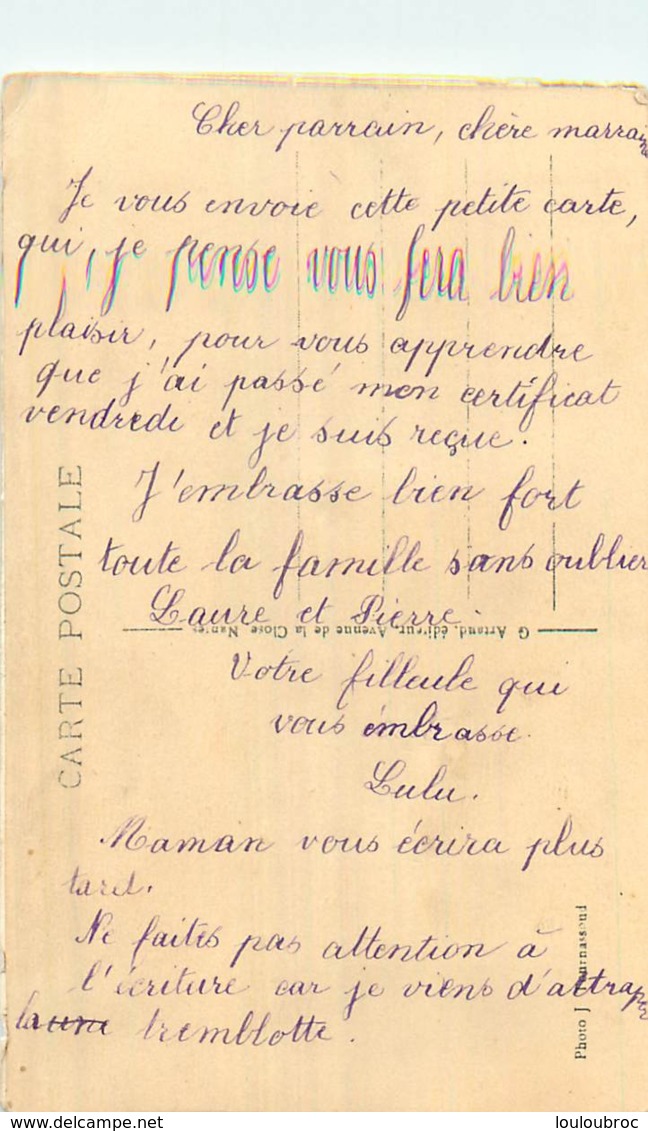 Cher parrain, chère marraine
Je vous envoie cette petite carte,
qui, je pense vous fera bien
plaisir, pour vous apprendre
que j'ai passé mon certificat
vendredi et je suis reçue.
J'embrasse bien fort
toute la famille sans oublier
Laure et Pierre.
Votre filleule qui
vous émbrasse.
Lulu.
Maman vous écrira plus
tard.
Ne faites pas attention à
l'écriture car je viens d'attraper
la tremblotte.
CARTE POSTALE
G. Artaud, éditeur, Avenue de la Close Nantes
Photo J
delcampe.net
louloubroc